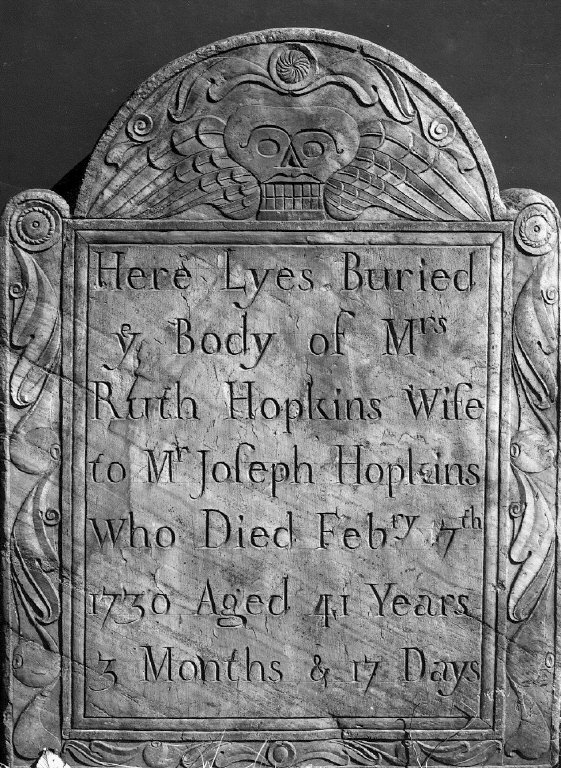 Here Lyes Buried
yͤ Body of Mʳˢ
Ruth Hopkins Wiſe
to Mʳ Joſeph Hopkins
Who Died Febʳʸ 7ᵗʰ
1730 Aged 41 Years
3 Months & 17 Days